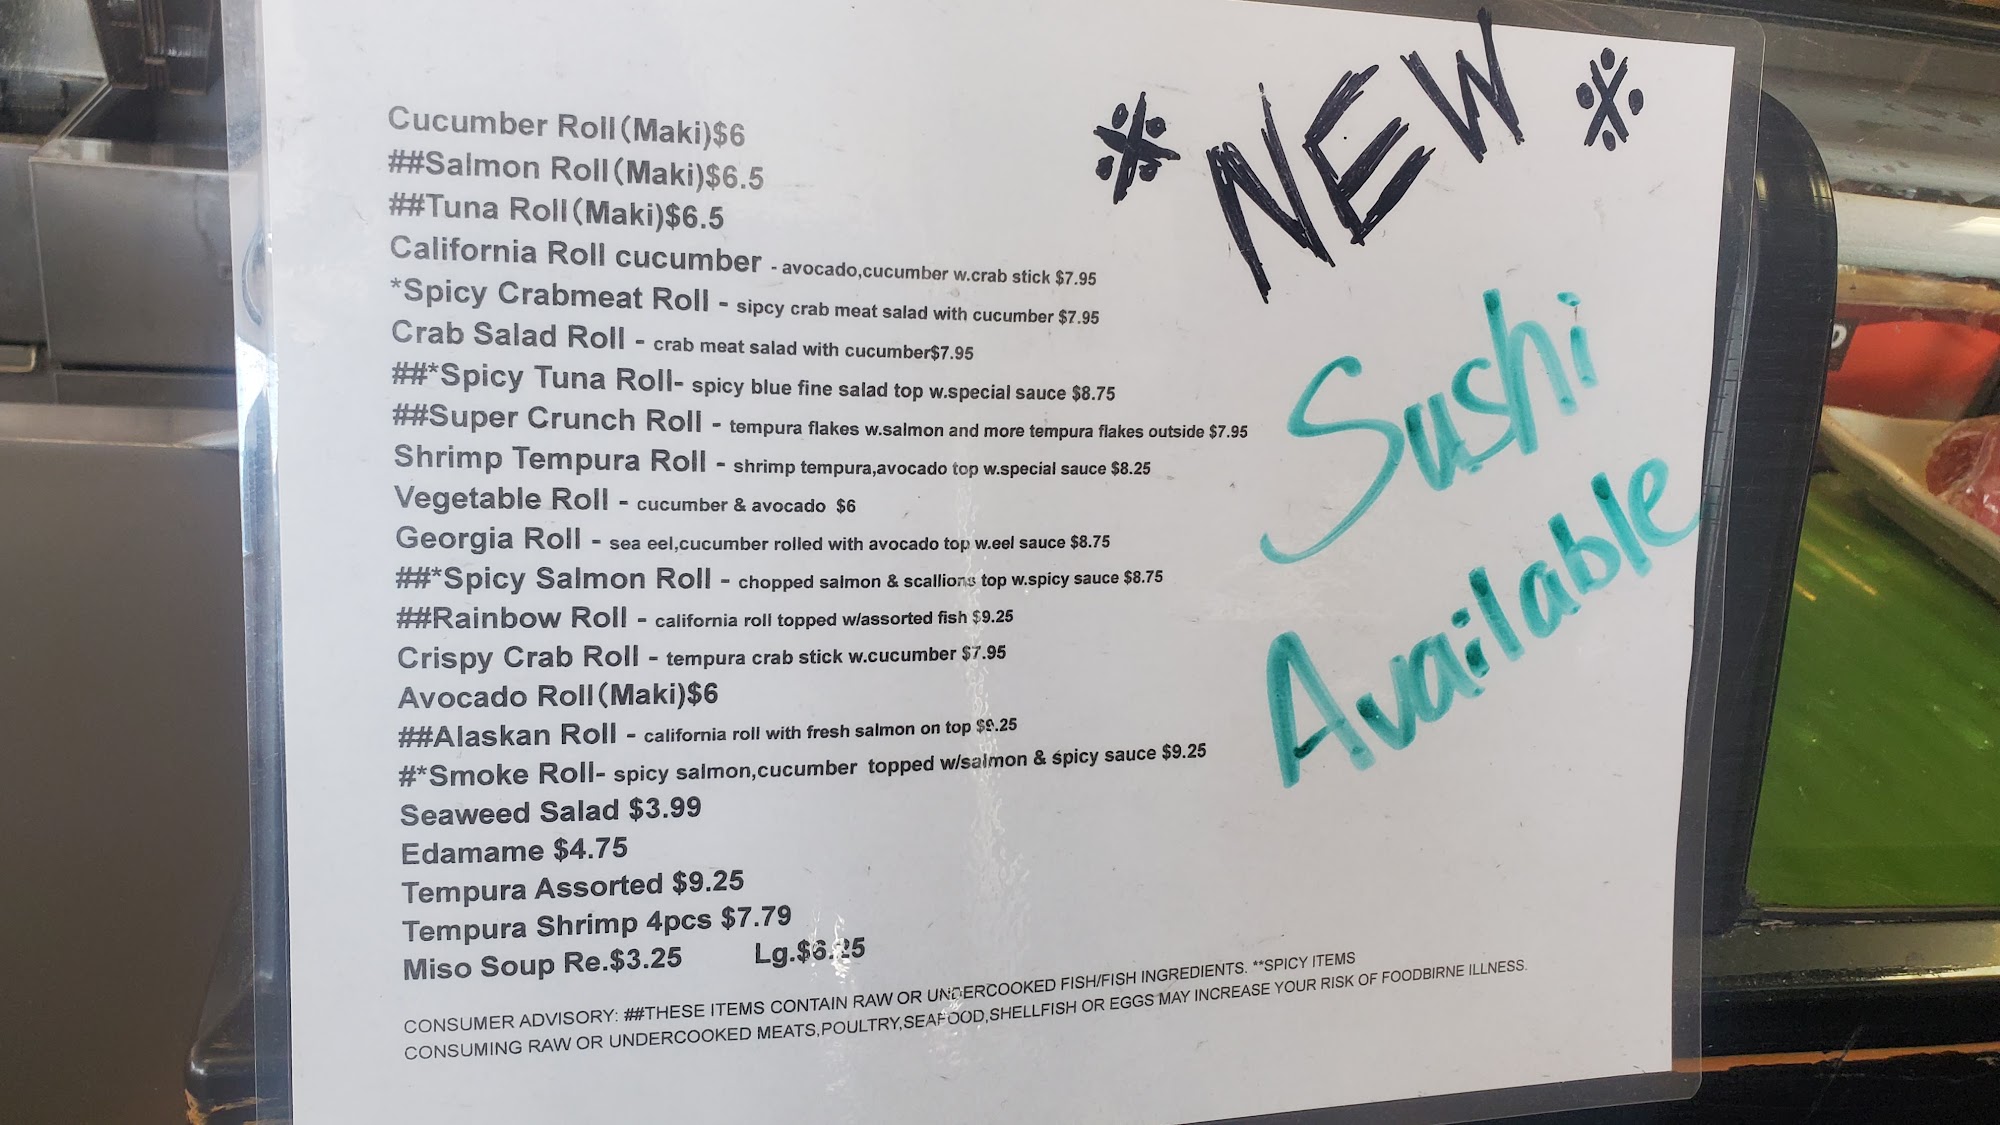 Cucumber Roll(Maki)$6
##Salmon Roll(Maki)$6.5
##Tuna Roll(Maki)$6.5
California Roll cucumber - avocado,cucumber w.crab stick $7.95
*Spicy Crabmeat Roll - sipcy crab meat salad with cucumber $7.95
Crab Salad Roll - crab meat salad with cucumber$7.95
##*Spicy Tuna Roll- spicy blue fine salad top w.special sauce $8.75
##Super Crunch Roll - tempura flakes w.salmon and more tempura flakes outside $7.95
Shrimp Tempura Roll - shrimp tempura,avocado top w.special sauce $8.25
Vegetable Roll - cucumber & avocado $6
Georgia Roll - sea eel,cucumber rolled with avocado top w.eel sauce $8.75
##*Spicy Salmon Roll - chopped salmon & scallions top w.spicy sauce $8.75
##Rainbow Roll - california roll topped w/assorted fish $9.25
Crispy Crab Roll - tempura crab stick w.cucumber $7.95
Avocado Roll(Maki)$6
##Alaskan Roll - california roll with fresh salmon on top $9.25
#*Smoke Roll- spicy salmon,cucumber topped w/salmon & spicy sauce $9.25
Seaweed Salad $3.99
Edamame $4.75
Tempura Assorted $9.25
Tempura Shrimp 4pcs $7.79
Miso Soup Re.$3.25 Lg.$6.25
CONSUMER ADVISORY: ##THESE ITEMS CONTAIN RAW OR UNDERCOOKED FISH/FISH INGREDIENTS. **SPICY ITEMS
CONSUMING RAW OR UNDERCOOKED MEATS,POULTRY,SEAFOOD,SHELLFISH OR EGGS MAY INCREASE YOUR RISK OF FOODBIRNE ILLNESS.
※ NEW ※
Sushi
Available